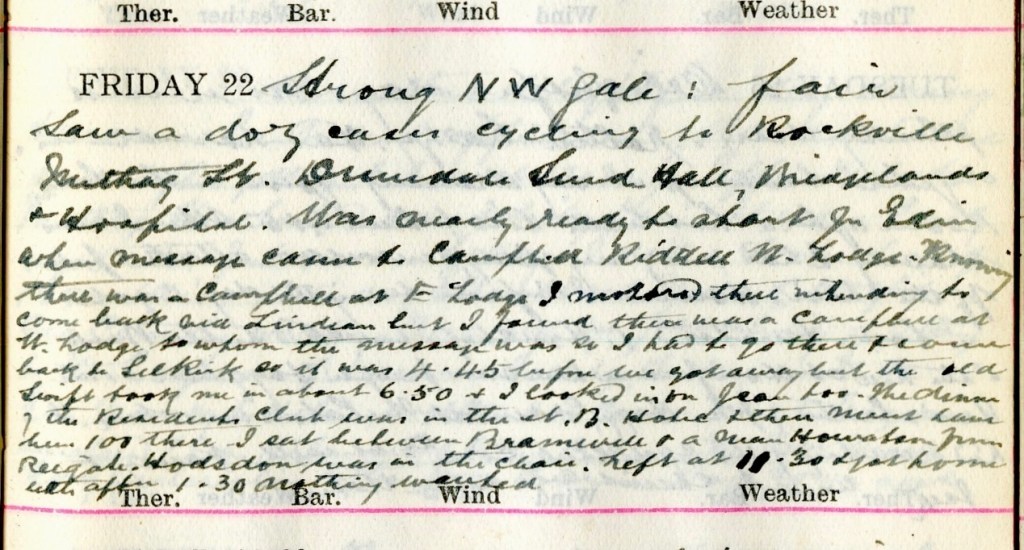 Ther. Bar. Wind Weather
FRIDAY 22 Strong NW Gale : fair
Saw a doz cases cycling to Rockville
St. Hall, Bridgelands
& Hospital. Was nearly ready to start for Edin
when message came to Campbell Riddell W. Lodge. Knowing
there was a Campbell at E Lodge I motored there intending to
come back via Lindean but I found there was a Campbell at
W. Lodge to whom the message was so I had to go there & come
back to Selkirk so it was 4.45 before we got away but the old
Swift took me in about 6.50 & I looked in on Jean too. The dinner
of the Residents Club was in the St. B. Hotel & there must have
been 100 there. I sat between Bramwell & a man Howatson from
Reigate. Hodsdon was in the chair. Left at 11.30 & got home
after 1.30 nothing wanted.
Ther. Bar. Wind Weather